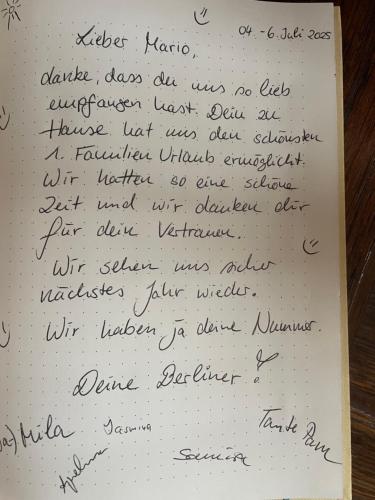 04. - 6. Juli 2025
Lieber Mario,
danke, dass du uns so lieb
empfangen hast. Dein zu
Hause hat uns den schönsten
1. Familien Urlaub ermöglicht.
Wir hatten so eine schöne
Zeit und wir danken dir
für dein Vertrauen.
Wir sehen uns sicher
nächstes Jahr wieder.
Wir haben ja deine Nummer.
Deine Berliner!
Mila Jasmina Tante Pam
Samira